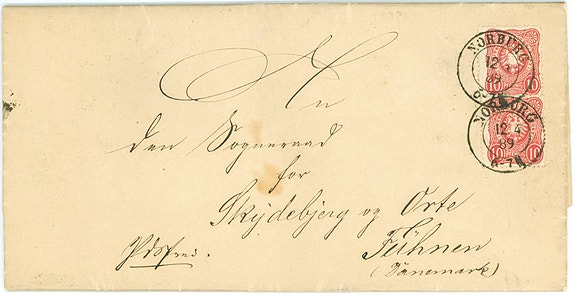 An
den Sogneraad
for
Skydebjerg og Orte
Fühnen
(Dänemark)
NORBURG
12 4
89
10 10
NORBURG
12 4
89
6-7N
10 10